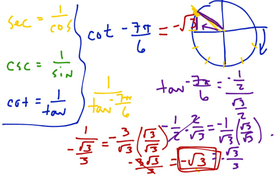 sec = 1/cos
csc = 1/sin
cot = 1/tan
cot -7π/6 = -√3
1/(tan -7π/6)
tan -7π/6 = (1/2)/(√3/2)
-1/2 · 2/√3 = -1/√3 (√3/√3) = -√3/3
1/(-√3/3) = -3/√3 (√3/√3)
-3√3/3 = -√3